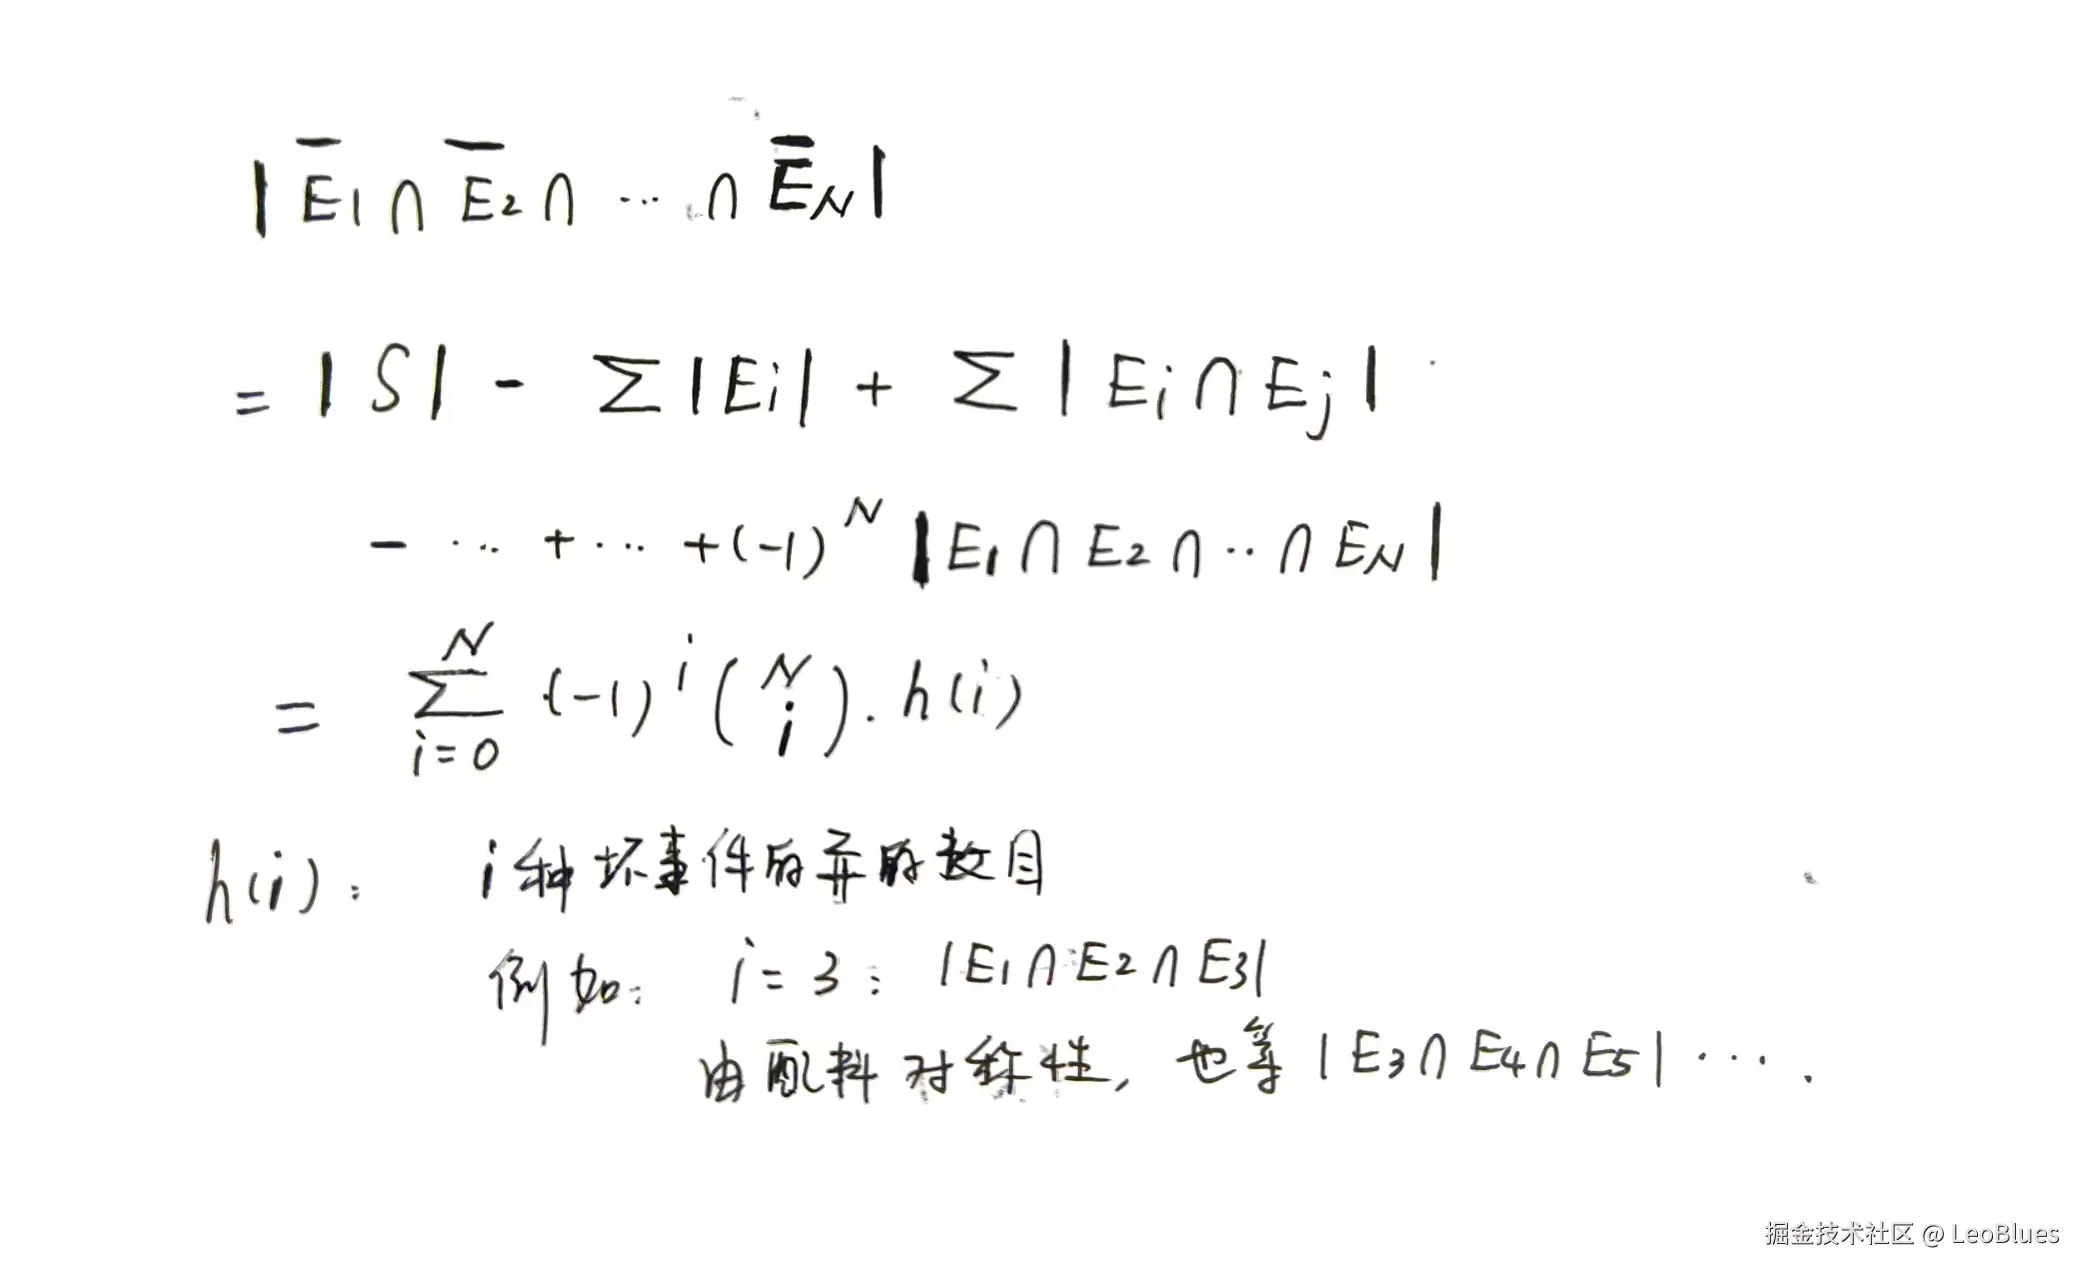 |E̅1∩E̅2∩…∩E̅N|
=|S|-∑|Ei|+∑|Ei∩Ej|
-…+…+(-1)^N|E1∩E2∩..∩EN|
=∑_{i=0}^{N}(-1)^i(N i).h(i)
h(i): i种坏事件的并的数目
例如: i=3: |E1∩E2∩E3|
由配料对称性, 也等|E3∩E4∩E5|….
掘金技术社区 @ LeoBlues